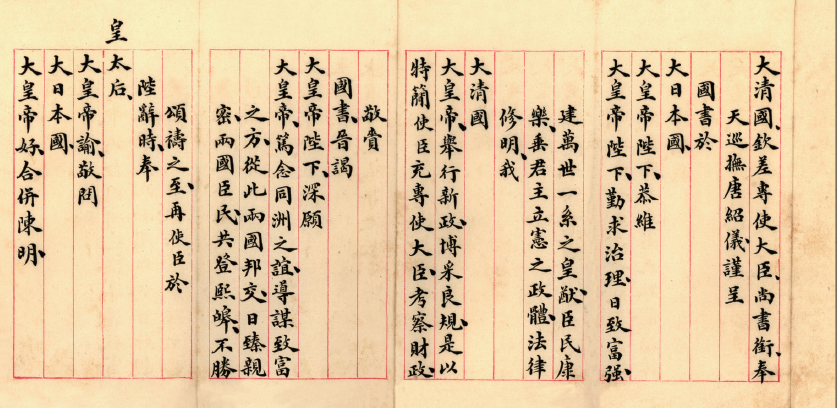 大清國、欽差專使大臣、尚書銜、奉
天巡撫唐紹儀、謹呈
國書於
大日本國、
大皇帝陛下、恭維
大皇帝陛下、勤求治理、日致富强、
建萬世一系之皇猷、臣民康
樂、垂君主立憲之政體、法律
修明、我
大清國
大皇帝、舉行新政、博采良規、是以
特簡使臣充專使大臣、考察財政、
敬賫
國書、晉謁
大皇帝陛下、深願
大皇帝、篤念同洲之誼、導謀致富
之方、從此兩國邦交、日臻親
密、兩國臣民、共登熙皞、不勝
頌禱之至、再使臣於
陛辭時、奉
皇太后、
大皇帝諭、敬問
大日本國、
大皇帝好、合併陳明、